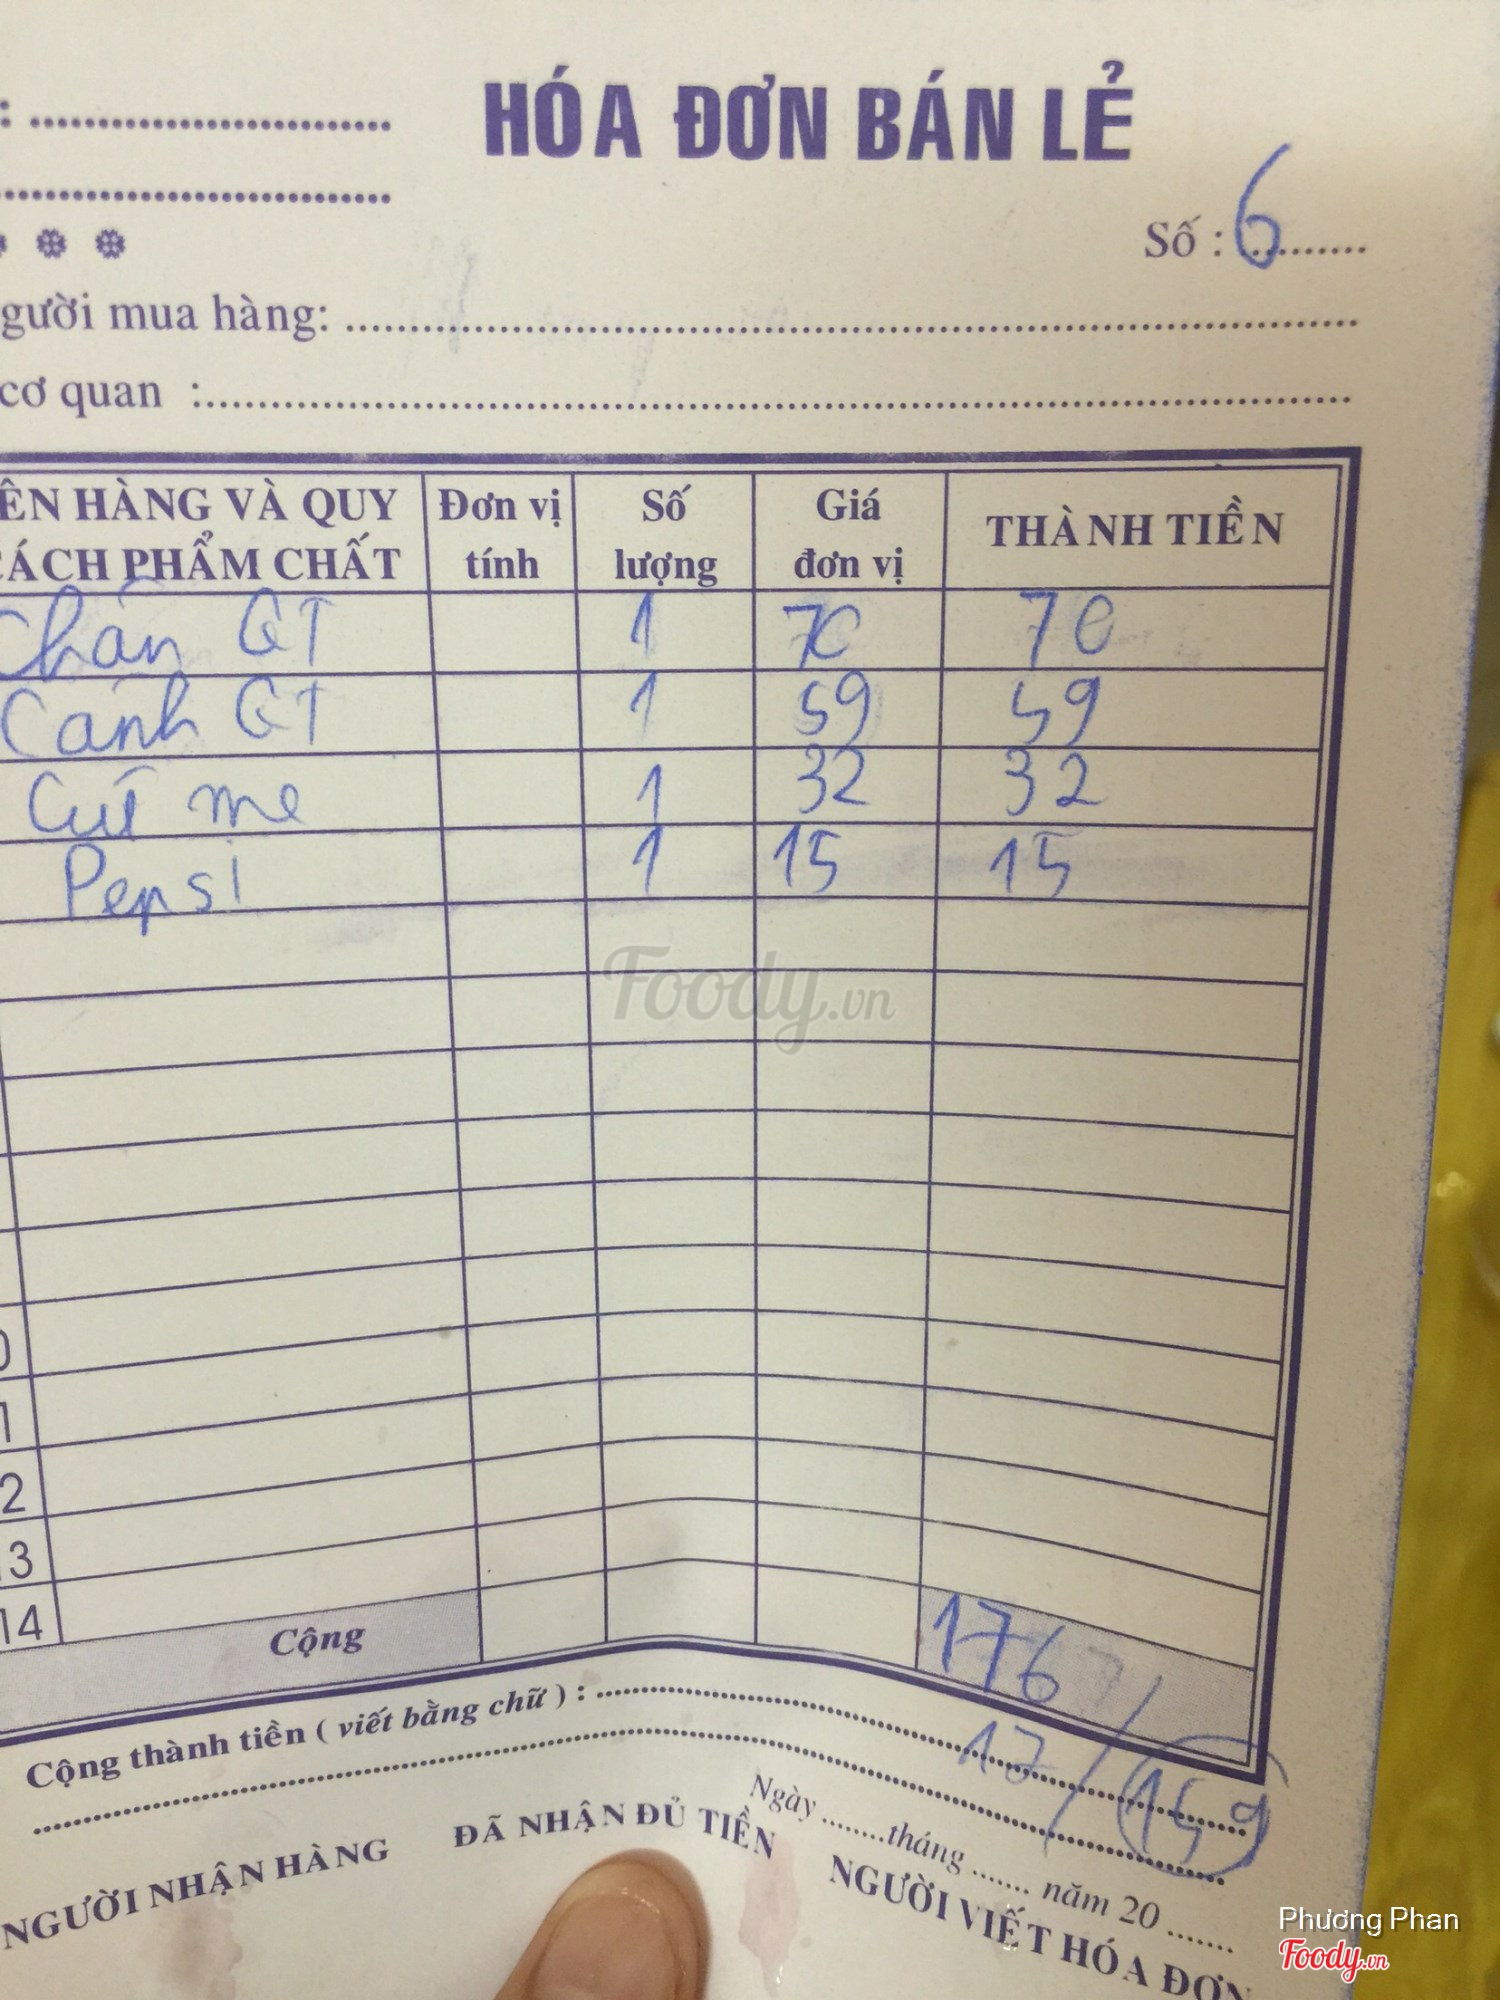 HÓA ĐƠN BÁN LẺ
Số : 6
gười mua hàng:
cơ quan :
ÊN HÀNG VÀ QUY CÁCH PHẨM CHẤT Đơn vị tính Số lượng Giá đơn vị THÀNH TIỀN
Chân GT 1 70 70
Cánh GT 1 59 59
Cút me 1 32 32
Pepsi 1 15 15
Foody.vn
0
1
2
13
14
Cộng 176
Cộng thành tiền ( viết bằng chữ ) :
17 / 159
Ngày ........tháng ....... năm 20 .......
NGƯỜI NHẬN HÀNG ĐÃ NHẬN ĐỦ TIỀN NGƯỜI VIẾT HÓA ĐƠN
Phương Phan
Foody.vn